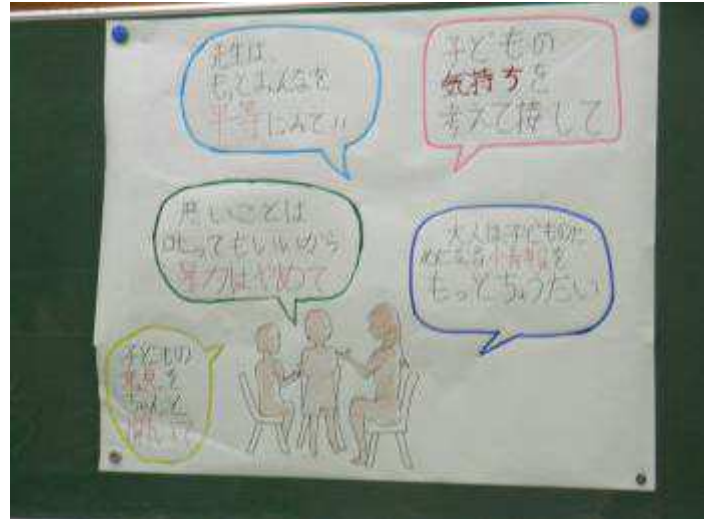 先生は
もっとみんなを
平等にみてい
子どもの
気持ちを
考えて接して
悪いことは
叱ってもいいから
暴力はやめて
大人は子どものた
めに
を
もっとちょうだい
子どもの
意見を
ちゃんと